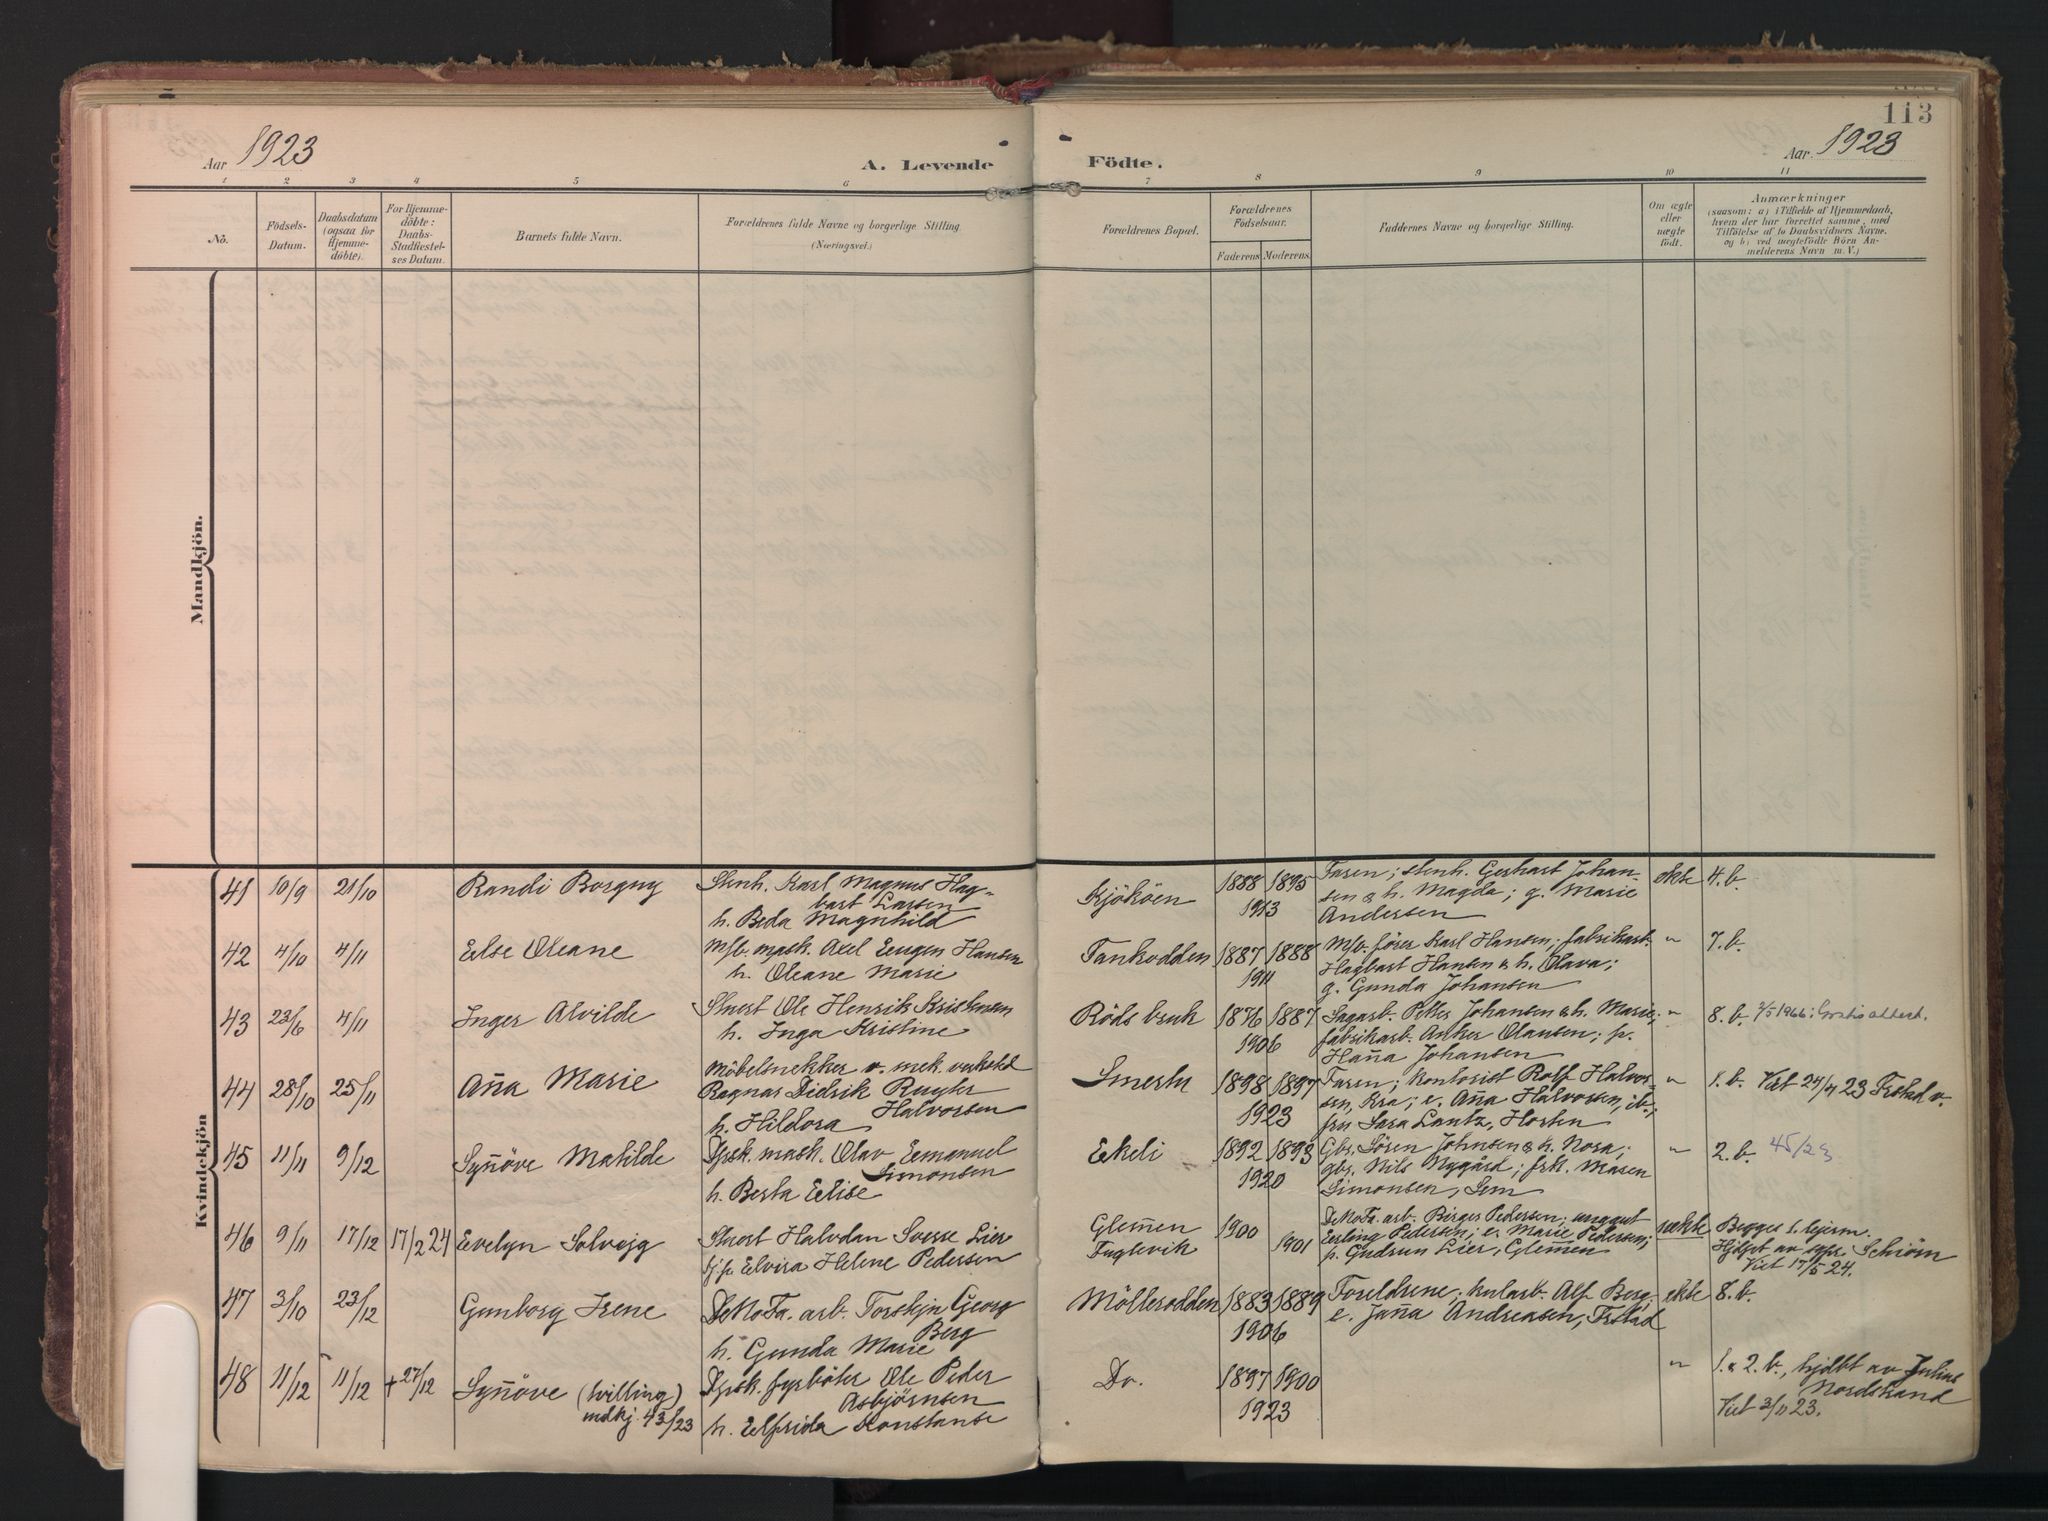 113
Aar 1923
A. Levende
Födte.
Aar 1923
1 2 3 4 5 6 7 8 9 10 11
No.
Födsels-
Datum.
Daabsdatum
(ogsaa for
Hjemme-
döbte).
For Hjemme-
döbte:
Daabs-
Stadfæstel-
ses Datum.
Barnets fulde Navn.
Forældrenes fulde Navne og borgerlige Stilling.
(Næringsvei.)
Forældrenes Bopæl.
Forældrenes
Födselsaar.
Faderens Moderens
Faddernes Navne og borgerlige Stilling.
Om ægte
eller
uægte
födt.
Anmærkninger
(saasom: a) i Tilfælde af Hjemmedaab,
hvem der har forrettet samme, med
Tilföielse af to Daabsvidners Navne,
og b) ved uægtefödte Börn An-
melderens Navn m. V.)
Mandkjön.
Kvindekjön
41 10/9 21/10 Randi Borgny
Stenh. Karl Magnus Hag-
bart Larsen
h. Beda Magnhild
Kjököen 1888 1895
1913
Faren; stenh. Gerhart Johan-
sen & h. Magda; g. Marie
Andersen
ekte 4. b.
42 4/10 4/11 Else Oleane
Mfb. mask. Axel Eugen Hansen
h. Oleane Marie
Tankodden 1887 1888
1911
Mfb. förer Karl Hansen; fabrikarb.
Hagbart Hansen & h. Olava;
g. Gunda Johansen
" 7. b.
43 23/6 4/11 Inger Alvilde
Stuert Ole Henrik Kristensen
h. Inga Kristine
Röds bruk 1876 1887
1906
Sagarb. Petter Johansen & h. Marie;
fabrikarb. Anker Olausen; p.
Hanna Johansen
" 8. b. 2/5 1966: Gratis attest.
44 28/10 25/11 Anna Marie
Möbelsnekker v. mek. verksted
Ragnar Didrik Ruyter
Halvorsen
h. Hildora
Smertu 1898 1897
1923
Faren; kontorist Rolf Halvor-
sen, Kra; e. Anna Halvorsen, ib.;
fru Sara Lantz, Horten
" 1. b. Viet 24/4 23 Frstad v.
45 11/11 9/12 Synnöve Matilde
Dpsk. mask. Olav Emanuel
Simonsen
h. Berta Elise
Ekeli 1892 1893
1920
Gbr. Sören Johnsen & h. Nora;
gbr. Nils Nygård; frk. Maren
Simonsen, Sem
" 2. b. 45/23
46 9/11 17/12 17/2 24 Evelyn Solvejg
Stuert Halvdan Sverre Lier
pike Elvira Helene Pedersen
Glemmen
Fuglevik
1900
1901
DeNoFa. arb. Birger Pedersen; unggut
Erling Pedersen; e. Marie Pedersen;
p. Gudrun Lier, Glemmen
uekte Begges 1. hjem.
Hjdpt av spr. Schiörn
Viet 17/5 24.
47 3/10 23/12 Gunborg Irene
DeNoFa. arb. Torstein Georg
Berg
h. Gunda Marie
Mölleroдden 1883 1889
1906
Foreldrene; kularb. Alf Berg;
e. Janna Andreasen, Frstad
ekte 8. b.
48 11/12 11/12 + 27/12 Synnöve (tvilling)
mdkj. 43/23
Dpsk. fyrböter Ole Peder
Asbjörnsen
h. Elfrida Konstanse
Do. 1897 1900
1923
" 1. & 2. b., hjdbt av Julius
Nordstrand
Viet 3/11 23.